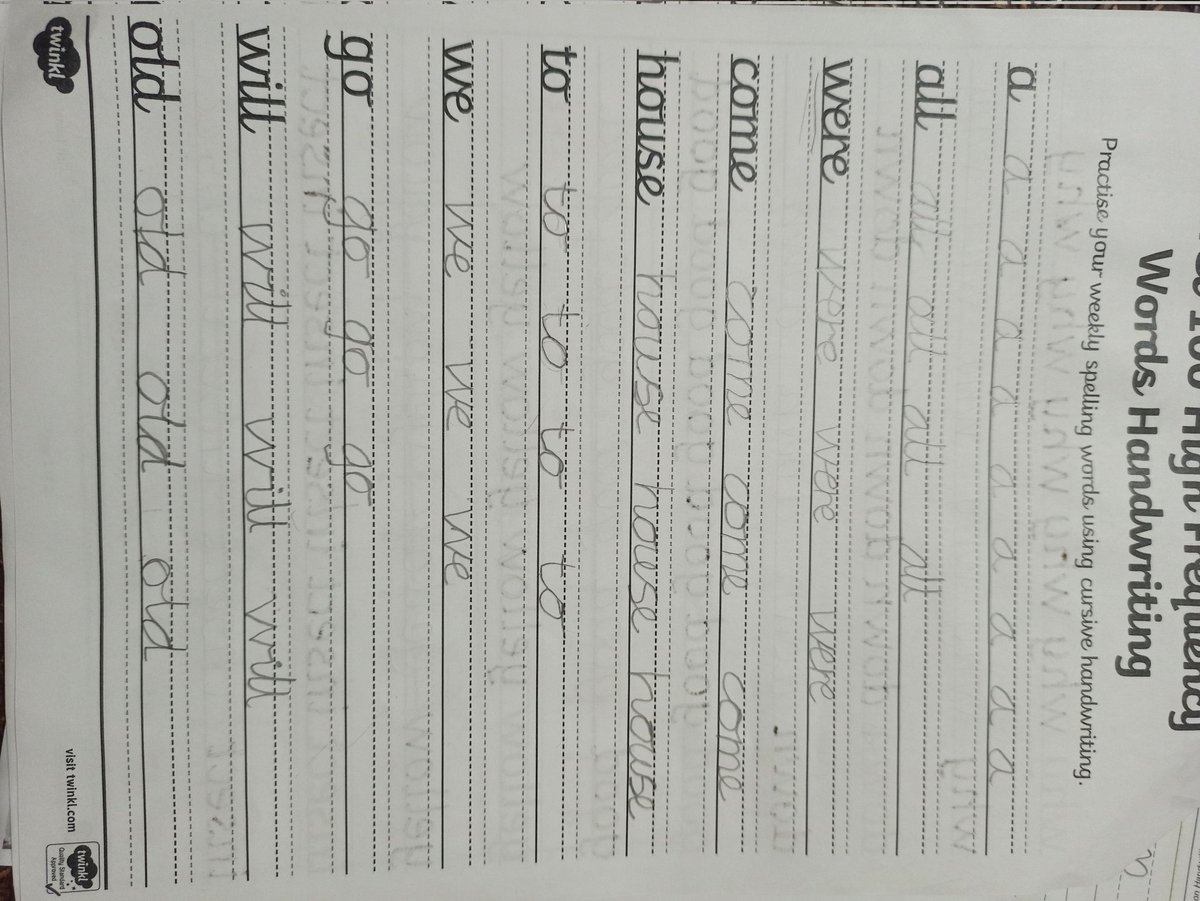 High Frequency
Words Handwriting
Practise your weekly spelling words using cursive handwriting.
a a a a a a a a a a
all all all all all
were were were were
come come come come
house house house house
to to to to to
we we we we
go go go go
will will will will
old old old old
twinkl
visit twinkl.com
twinkl
Quality Standard
Approved